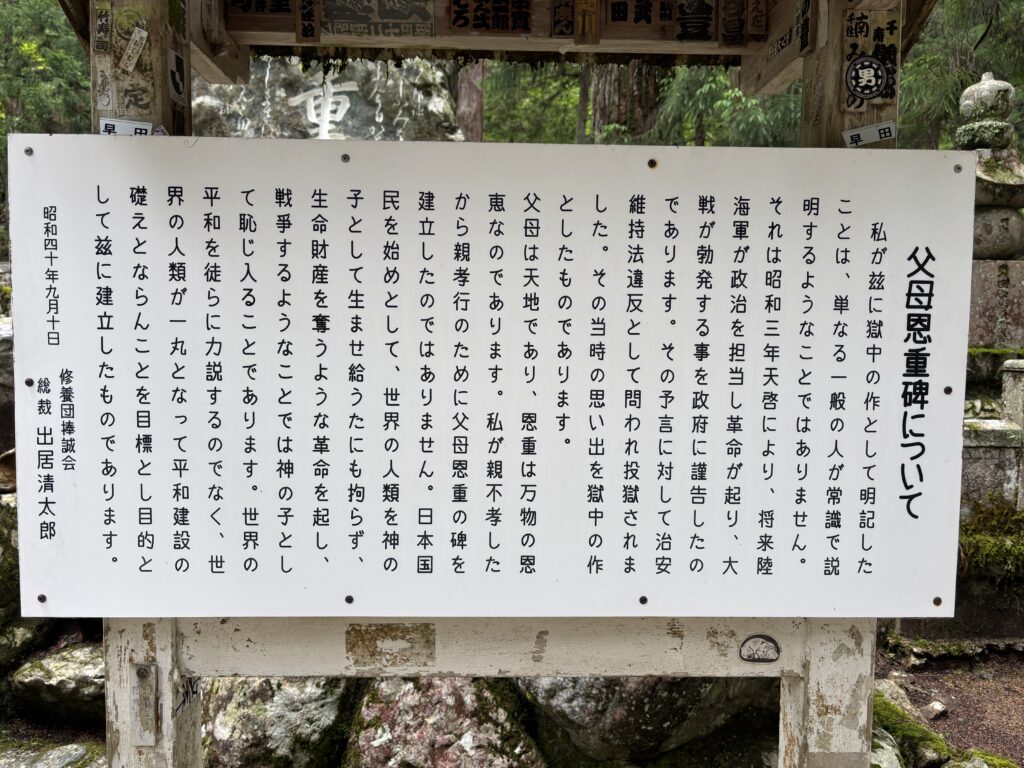 父母恩重碑について
私が玆に獄中の作として明記した
ことは、単なる一般の人が常識で説
明するようなことではありません。
それは昭和三年天啓により、将来陸
海軍が政治を担当し革命が起り、大
戦が勃発する事を政府に謹告したの
であります。その予言に対して治安
維持法違反として問われ投獄されま
した。その当時の思い出を獄中の作
としたものであります。
父母は天地であり、恩重は万物の恩
恵なのであります。私が親不孝した
から親孝行のために父母恩重の碑を
建立したのではありません。日本国
民を始めとして、世界の人類を神の
子として生ませ給うたにも拘らず、
生命財産を奪うような革命を起し、
戦爭するようなことでは神の子とし
て恥じ入ることであります。世界の
平和を徒らに力説するのでなく、世
界の人類が一丸となって平和建設の
礎えとならんことを目標とし目的と
して玆に建立したものであります。
昭和四十年九月十日
修養団捧誠会
総裁 出居清太郎
重
早田
早田
男